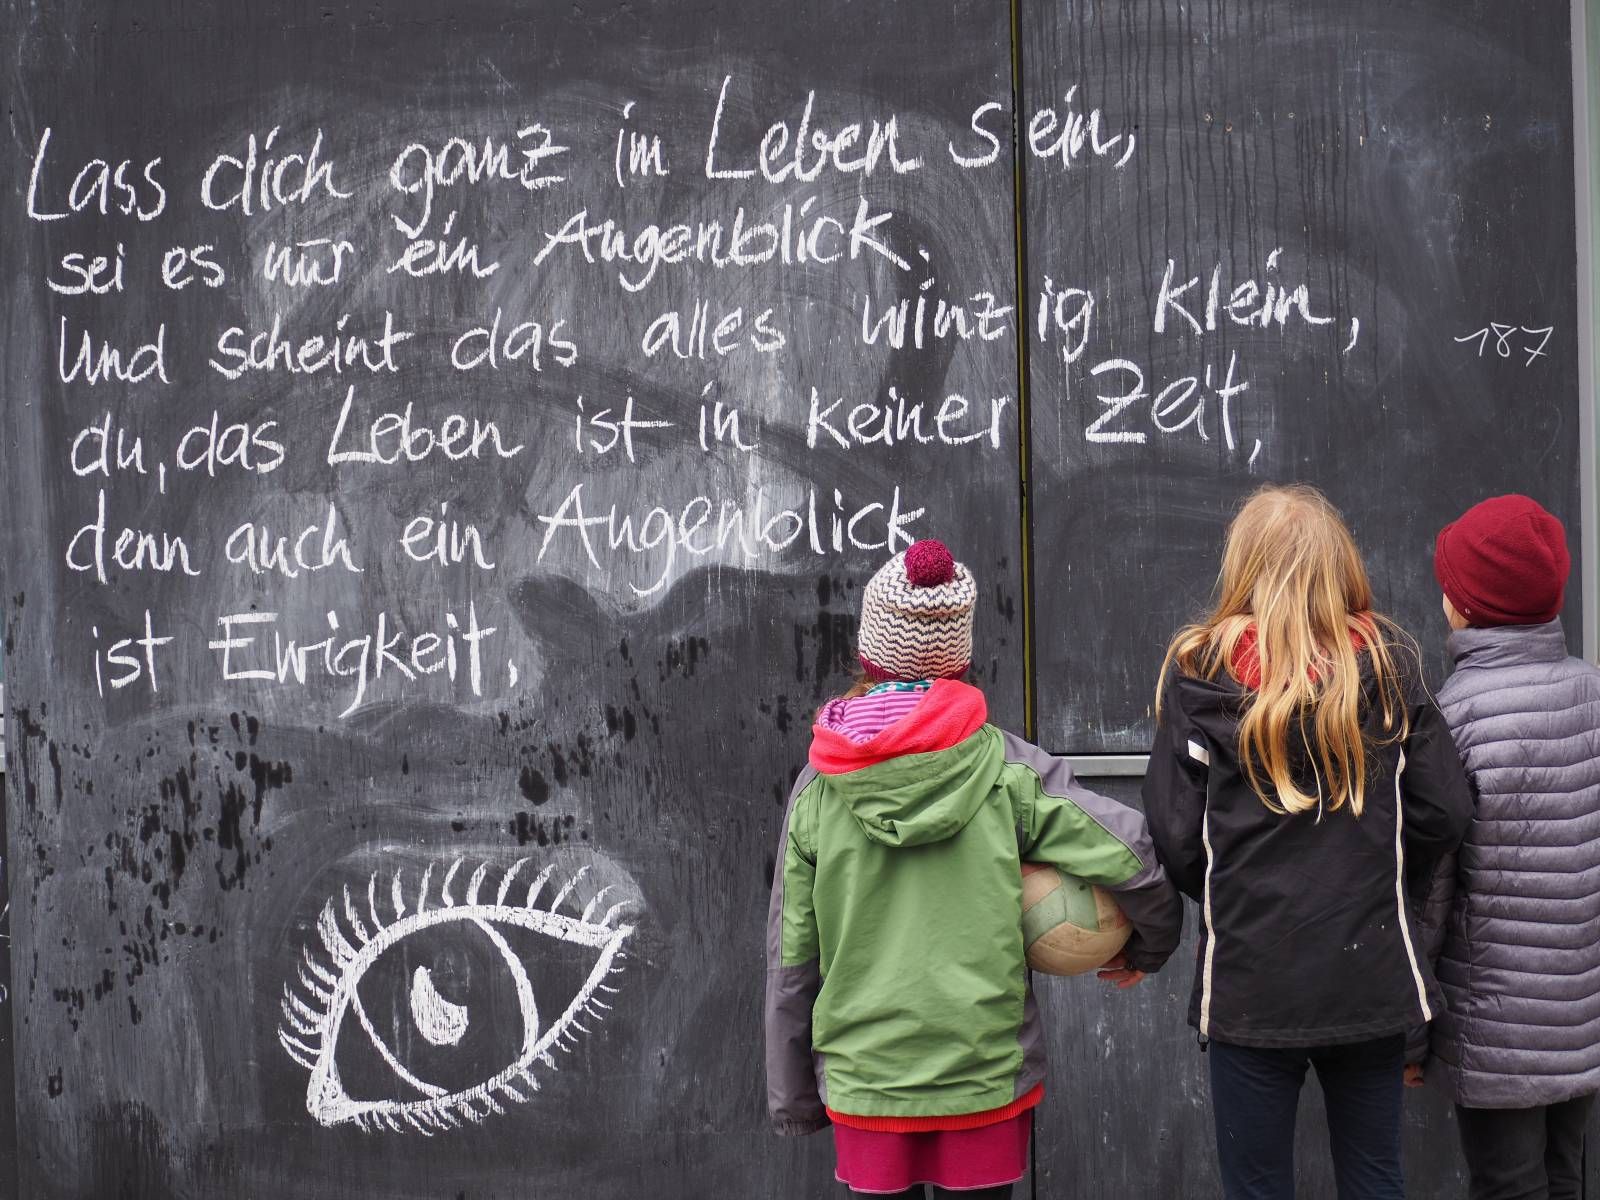 Lass dich ganz im Leben sein,
sei es nur ein Augenblick.
Und scheint das alles winzig klein,
du, das Leben ist in keiner Zeit,
denn auch ein Augenblick
ist Ewigkeit.
187